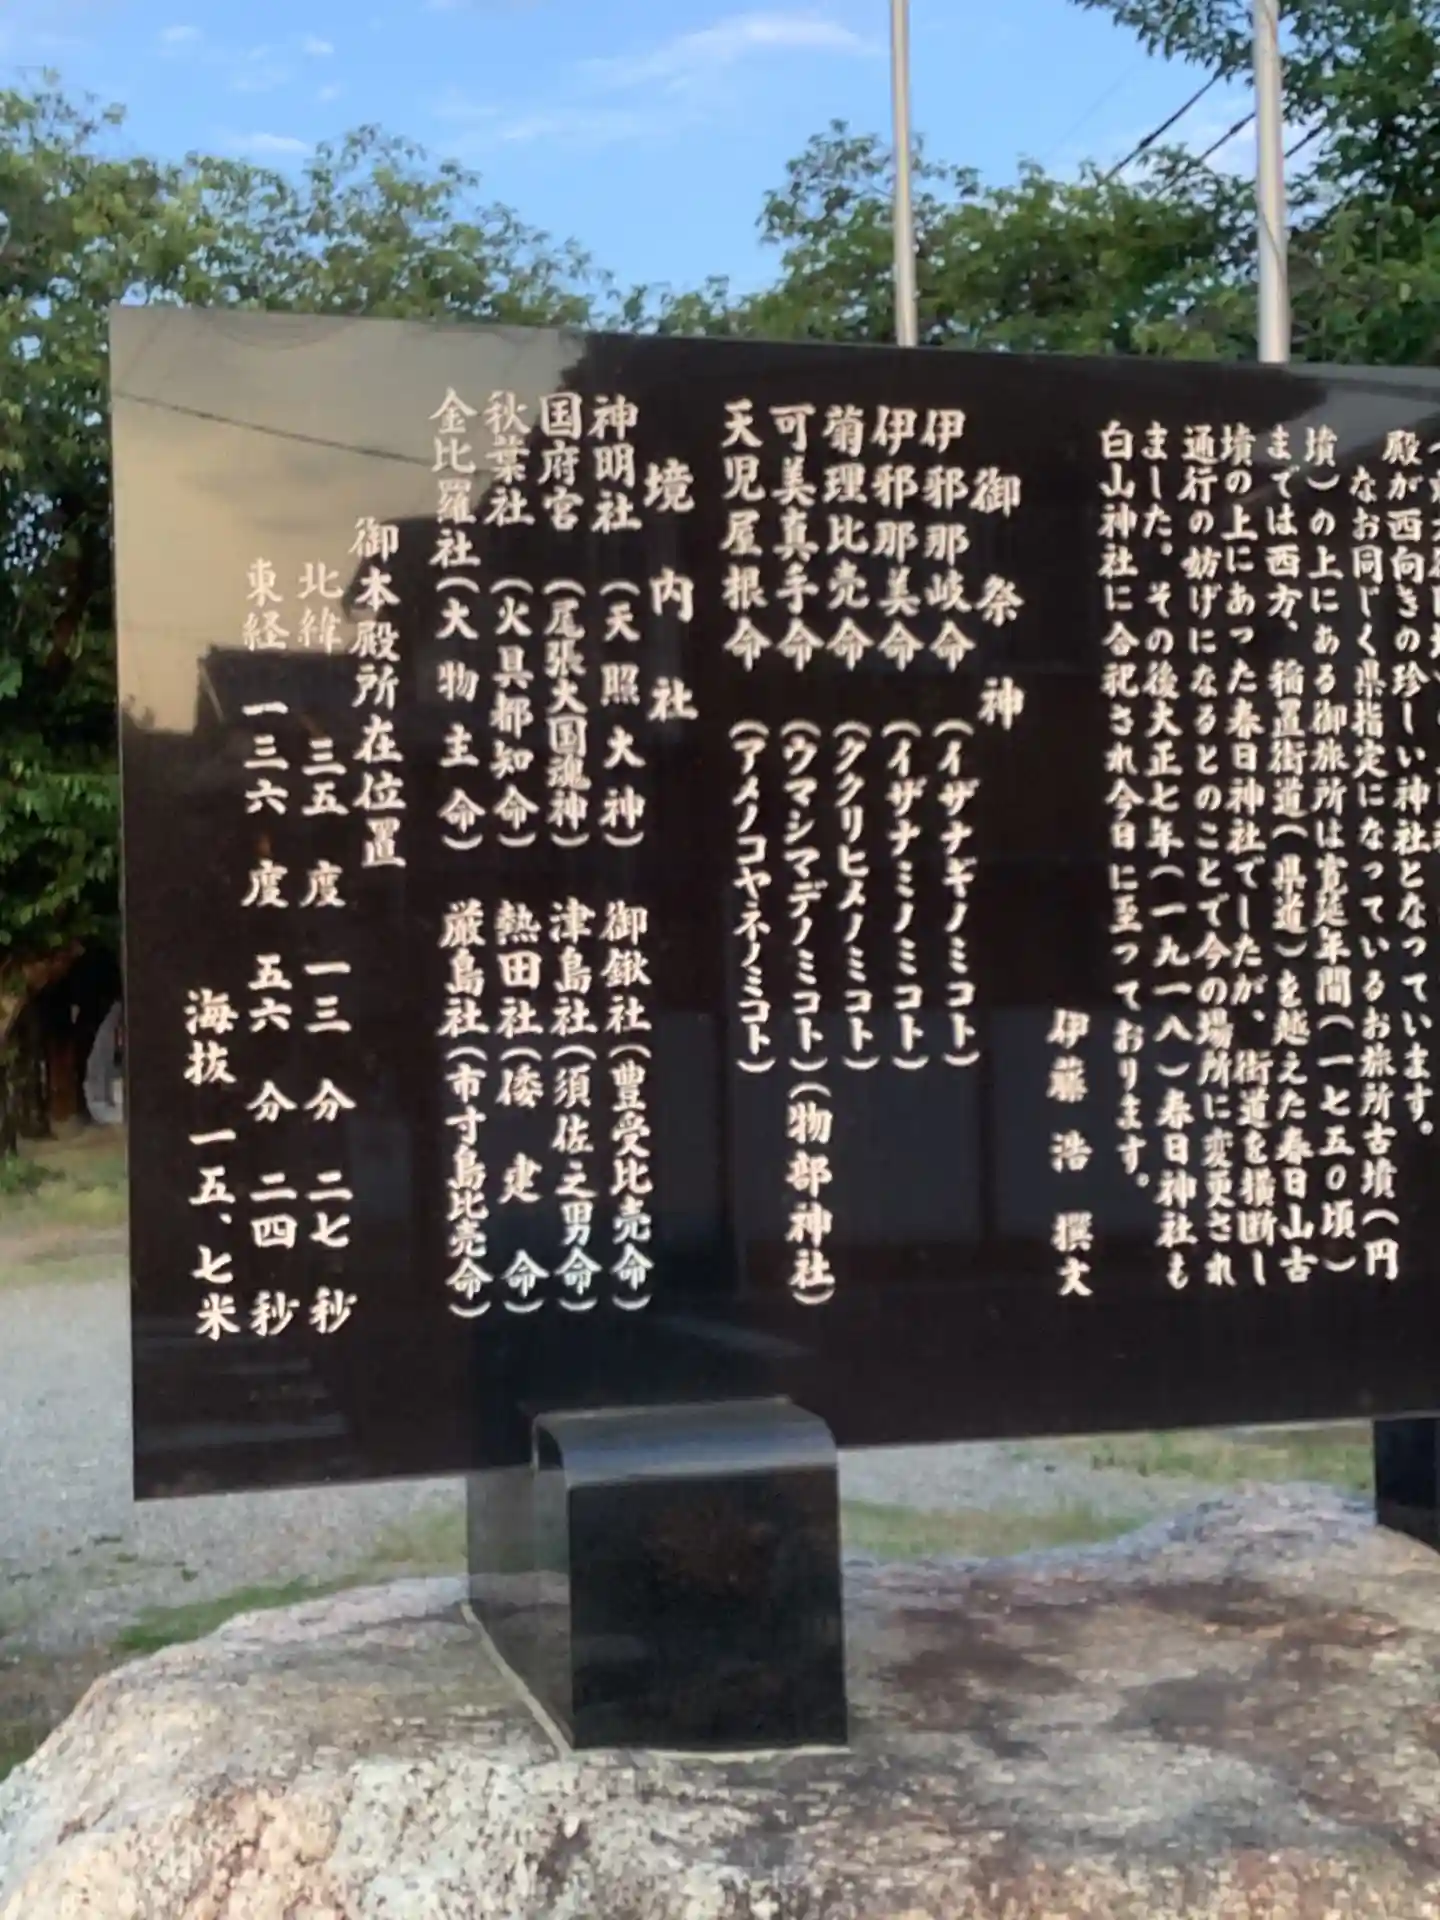 殿が西向きの珍しい神社となっています。
なお同じく県指定になっているお旅所古墳(円
墳)の上にある御旅所は寛延年間(一七五〇頃)
までは西方、稲置街道(県道)を越えた春日山古
墳の上にあった春日神社でしたが、街道を横断し
通行の妨げになるとのことで今の場所に変更され
ました。その後大正七年(一九一八)春日神社も
白山神社に合祀され今日に至っております。
伊藤 浩 撰文
御祭神
伊邪那岐命 (イザナギノミコト)
伊邪那美命 (イザナミノミコト)
菊理比売命 (ククリヒメノミコト)
可美真手命 (ウマシマデノミコト)(物部神社)
天児屋根命 (アメノコヤネノミコト)
境内社
神明社 (天照大神) 御鍬社(豊受比売命)
国府宮 (尾張大国魂神) 津島社(須佐之男命)
秋葉社 (火具都知命) 熱田社(倭建命)
金比羅社(大物主命) 厳島社(市寸島比売命)
御本殿所在位置
北緯 三五度 一三分 二七秒
東経 一三六度 五六分 二四秒
海抜 一五、七米